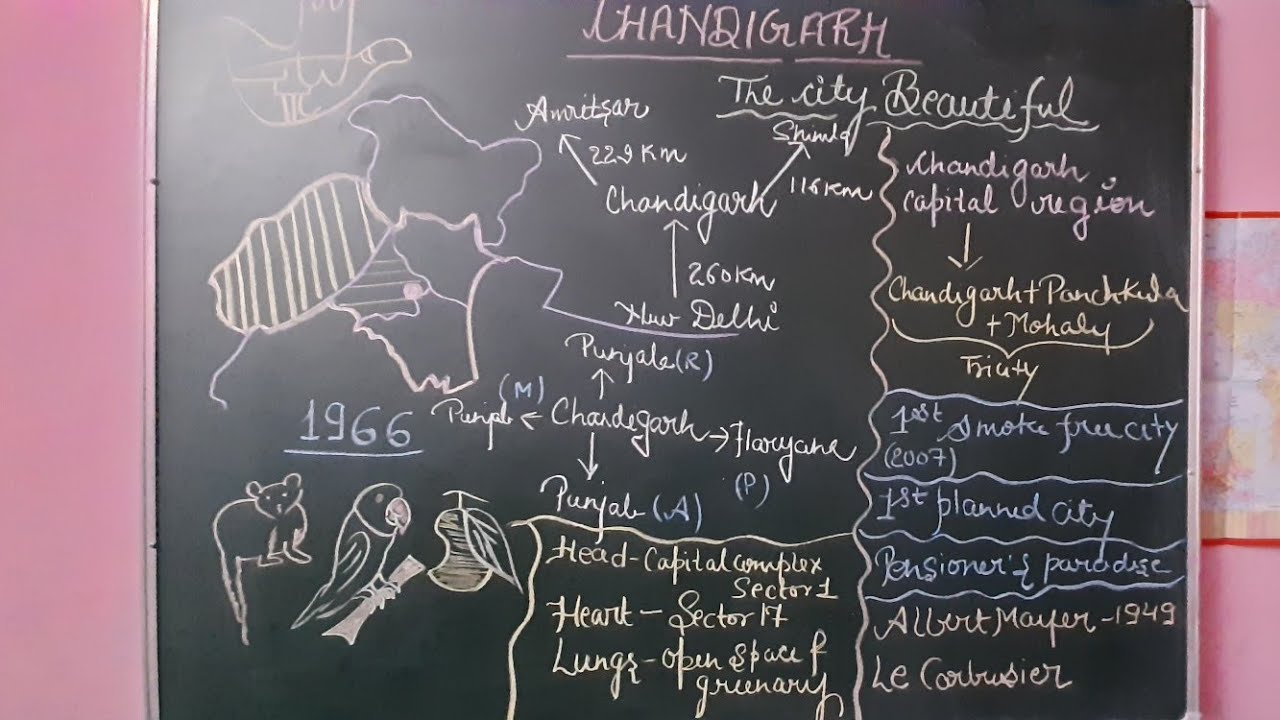 CHANDIGARH
The city Beautiful
Amritsar
Shimla
229 Km
116 Km
Chandigarh
260 Km
New Delhi
Punjab (R)
(M)
Punjab ← Chandigarh → Haryana
(P)
Punjab (A)
1966
Head - Capital complex
Sector 1
Heart - Sector 17
Lungs - open space &
greenary
Chandigarh
capital region
Chandigarh + Panchkula
+ Mohaly
Tricity
1st smoke free city
(2007)
1st planned city
Pensioner's paradise
Albert Mayer - 1949
Le Corbusier